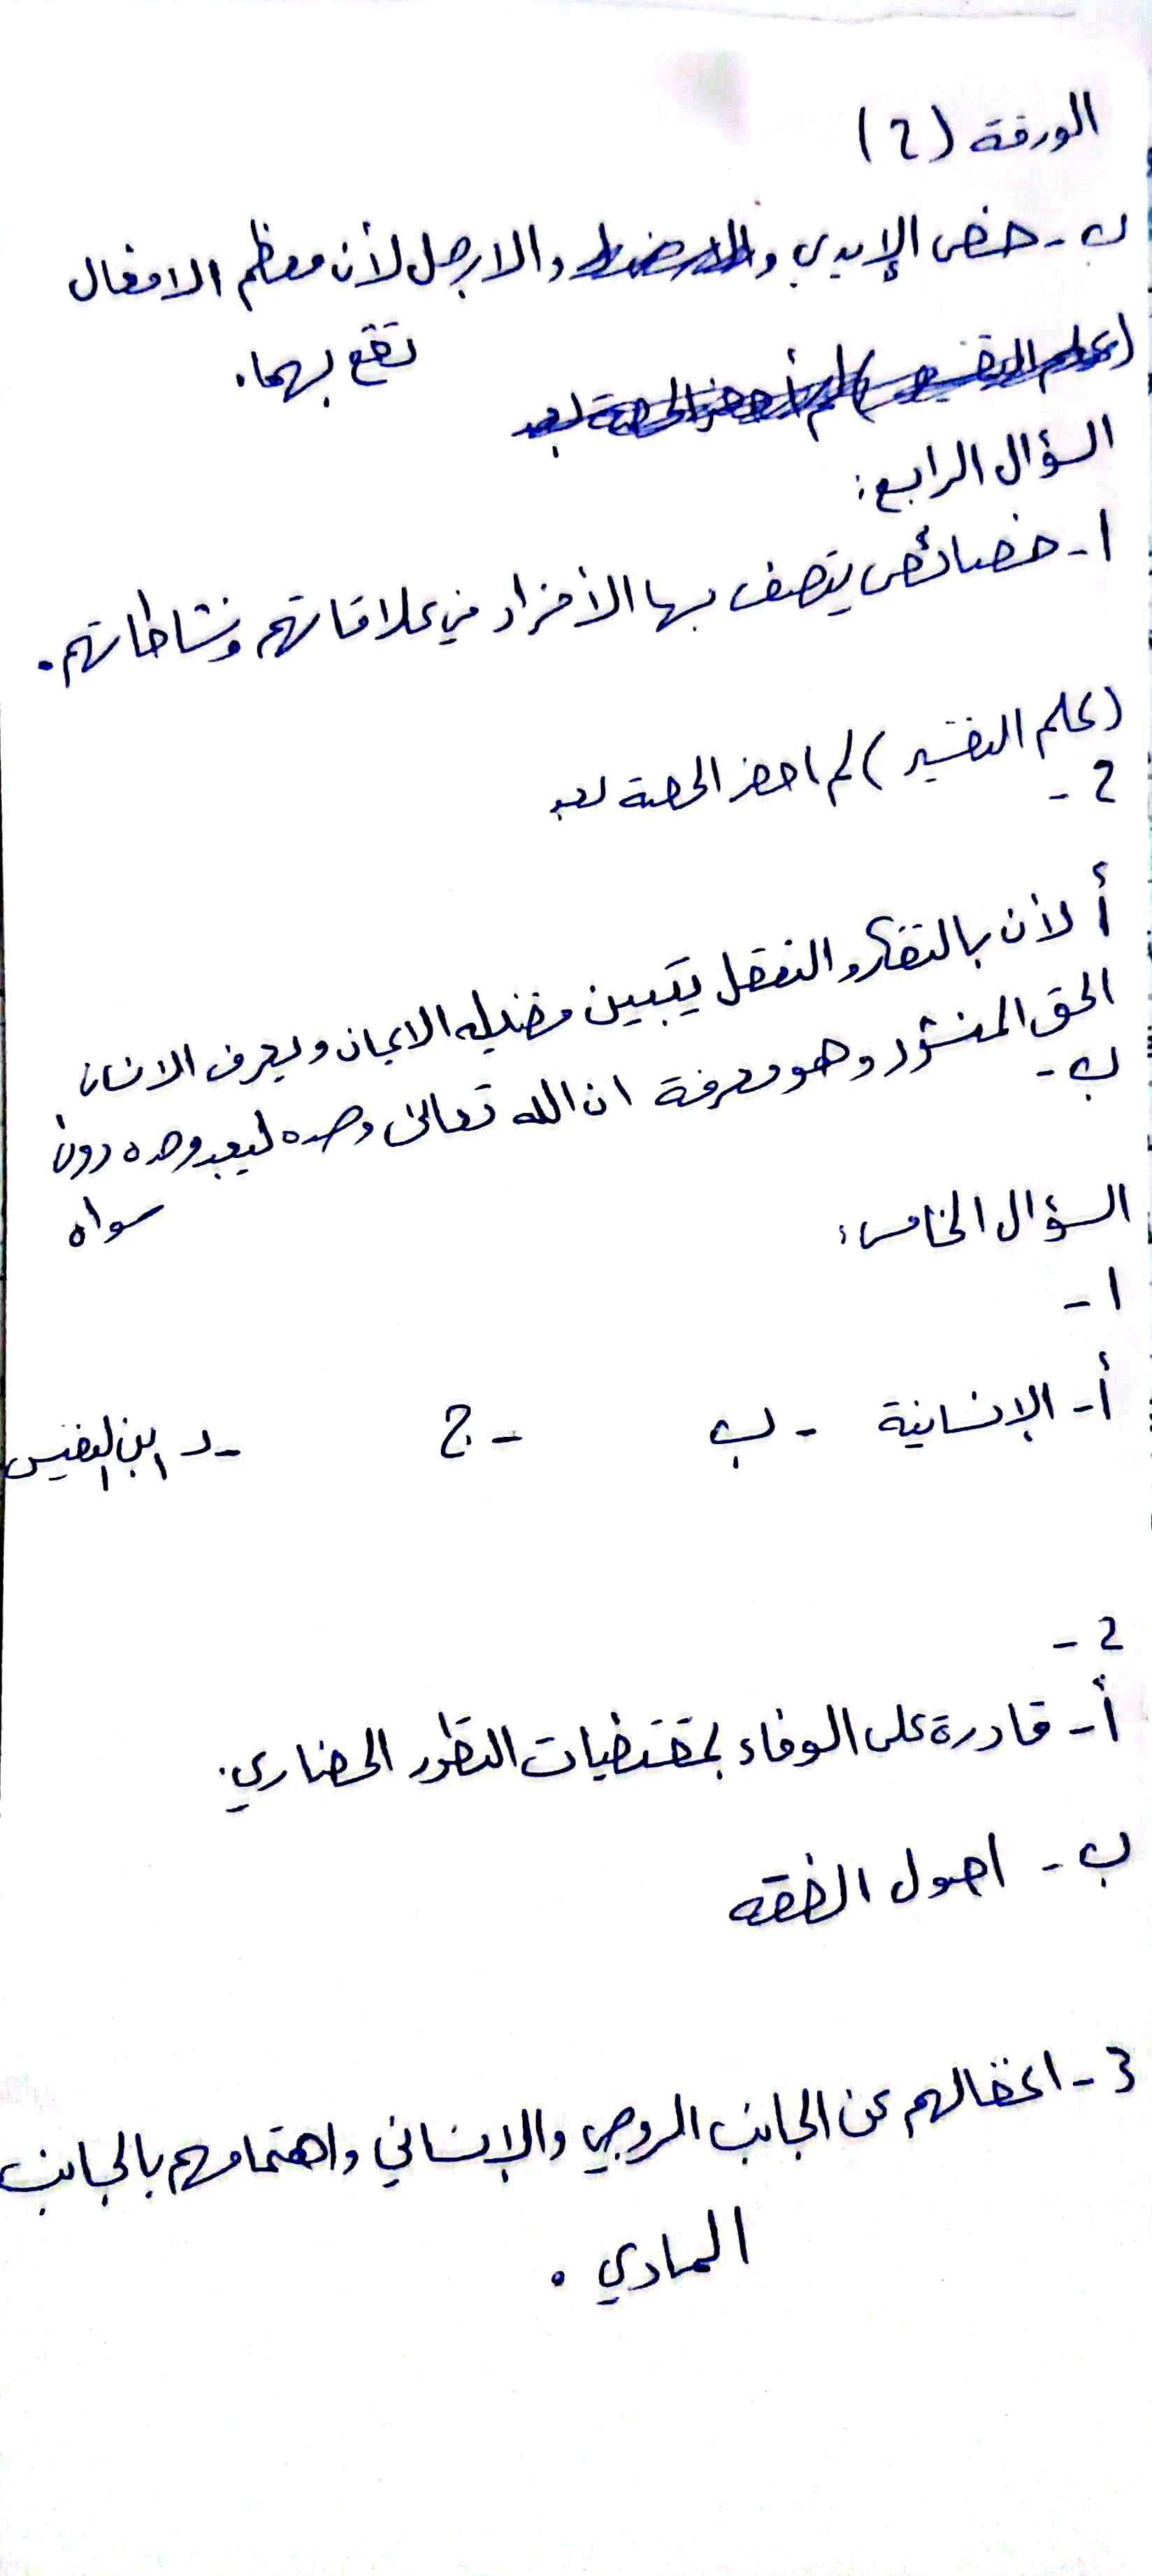 الورقة (2)
ب - خص الإيدي و والارجل لأن معظم الافعال
تقع بهما.
(علم التفسير) لم أحضر الحصة بعد
السؤال الرابع:
1 - خصائص يتصف بها الأفراد في علاقاتهم ونشاطاتهم.
(علم التفسير) لم احضر الحصة بعد
2 -
أ لأن بالتفكر والتعقل يتبين فضيله الايمان ويعرف الانسان
الحق المنشود وهو معرفة ان الله تعالى وحده ليعبد وحده دون
سواه
ب -
السؤال الخامس:
1 -
أ - الإنسانية - ب - ج - د ابن النفيس
2 -
أ - قادرة على الوفاء بمقتضيات التطور الحضاري.
ب - اصول الفقه
3 - اغفالهم عن الجانب الروحي والإنساني واهتمامهم بالجانب
المادي.